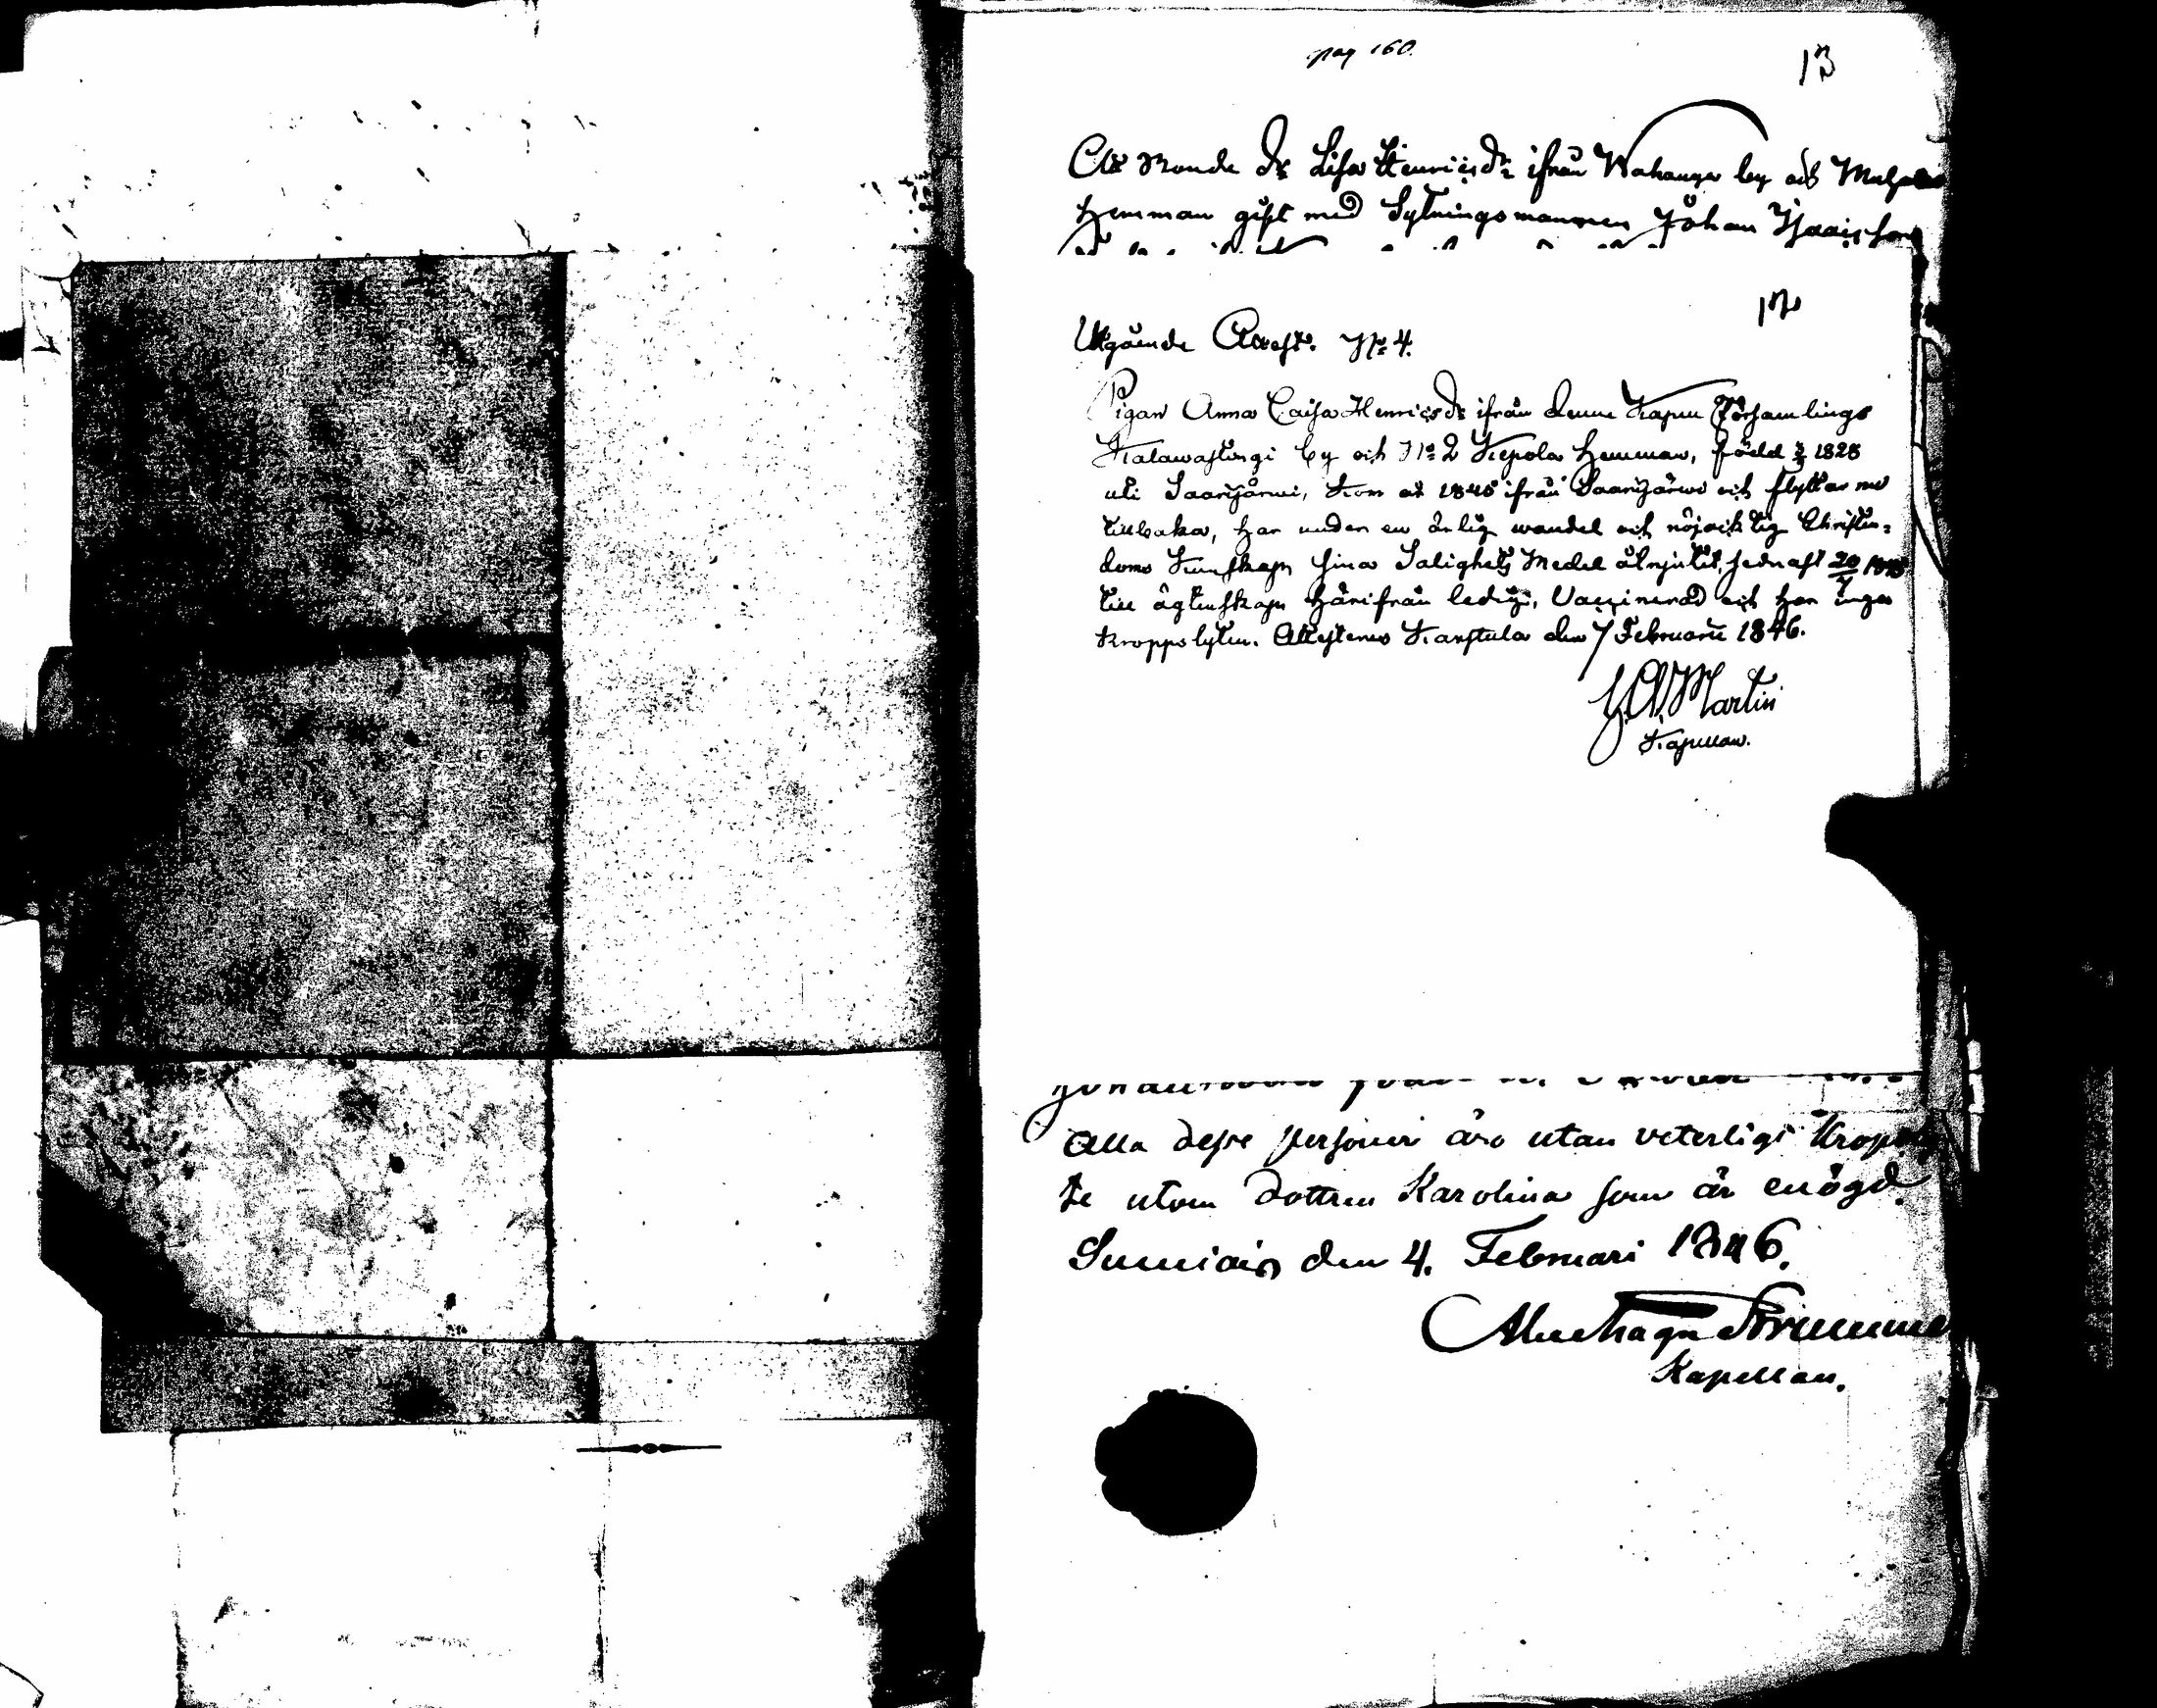 pag 160.
13
Lisa Henricsdr ifrån Wahanga by och
Hemman gift med Sytningsmannen Johan Isaacsson
12
Utgående Attest. No 4.
Pigan Anna Caisa Henricsdr ifrån denne Capell Församlings
Kalawastingi by och No 2 Kepola Hemman, född 1828
uti Saarijärwi, kom åt 1845 ifrån Saarijärwi och flyttar nu
tillbaka, har under en ärlig wandel och nöjacktig Christen-
doms Kunskap sina Salighets Medel åtnjutit, sednast 20/7 1845
till ägtenskap härifrån ledig, Vaccinerad och har inga
kroppslyten. Attesteras Karstula den 7 Februarii 1846.
Martin
Kapellan.
Alla desse personer äro utan veterligt
te utom dottren Karolina som är enögd.
Sumiais den 4. Februari 1846.
Kapellan.